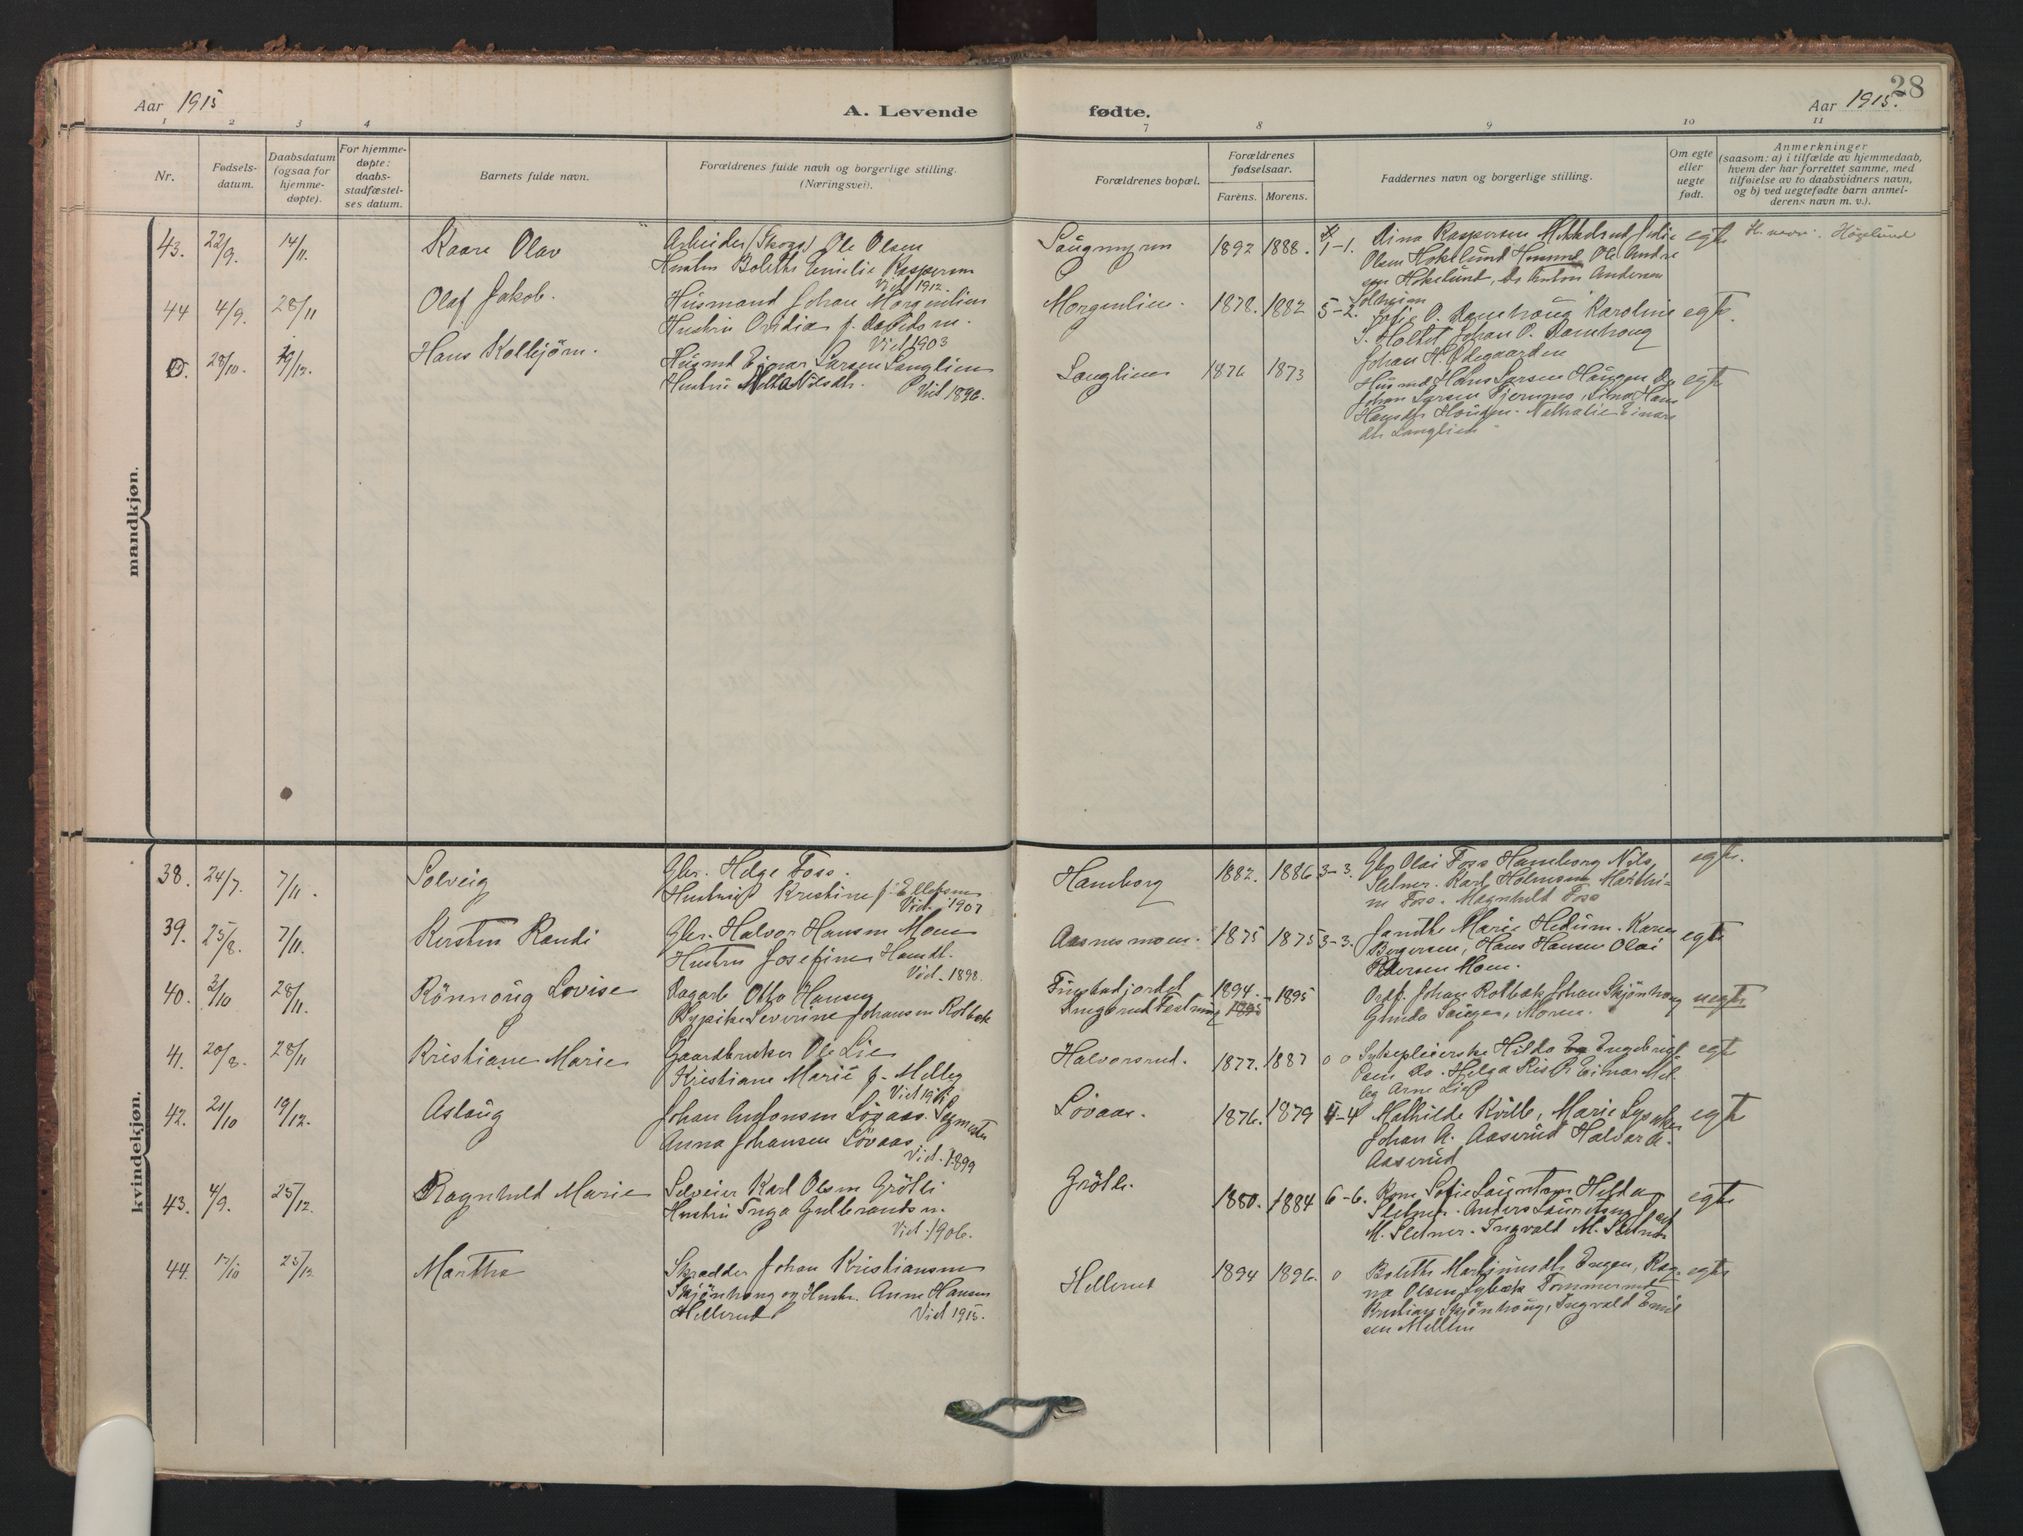 Aar 1915
A. Levende fødte.
Aar 1915.
28
1 2 3 4 7 8 9 10 11
Nr.
Fødsels-
datum.
Daabsdatum
(ogsaa for
hjemme-
døpte).
For hjemme-
døpte:
daabs-
stadfæstel-
ses datum.
Barnets fulde navn.
Forældrenes fulde navn og borgerlige stilling.
(Næringsvei).
Forældrenes bopæl.
Forældrenes
fødselsaar.
Farens. Morens.
Faddernes navn og borgerlige stilling.
Om egte
eller
uegte
født.
Anmerkninger
(saasom: a) i tilfælde av hjemmedaab,
hvem der har forrettet samme, med
tilføielse av to daabsvidners navn,
og b) ved uegtefødte barn anmel-
derens navn m. v.).
mandkjøn.
43. 22/9. 14/11. Kaare Olav
Arbeider (Skogs) Ole Olsen
Hustru Bolethe Emilie Kaspersen
Vied 1912.
Saugmyren 1892 1888. 1-1.
Dina Kaspersen
Olsen Hokslund Ole Andre
sen Hokslund, Do Anton Andersen
Solheim
egte
Høgelund
44 4/9. 28/11 Olaf Jakob.
Husmand Johan Morgenlien
Hustru Ovidia f. Davidsen.
Vied 1903
Morgenlien. 1878. 1882 5-2.
Sofie O. Damhoug Karoline
S. Holtet Johan O. Damhoug
Johan H. Ødegaarden
egte.
28/10. 19/12. Hans Kolbjørn.
Husmd Einar Larsen Langlien
Hustru Nilsdtr. Vied 1896.
Langlien 1876 1873
Husmd Hans Larsen Haugen Do
Johan Larsen Lina Hans
Hansdtr Haugen. Nathalie Einars
dtr Langlien
egte
kvindekjøn.
38. 24/7. 7/11. Solveig
Gbr. Helge Foss.
Hustru Kristine f. Ellefsen
Vied. 1907
Hamborg 1882. 1886 3-3.
Gbr Olai Foss Hamborg Nils
Sletner. Karl Holmsen Marthi-
ne Foss. Magnhild Foss
egte.
39. 25/8. 7/11. Kirsten Randi
Gbr. Halvor Hansen Moen
Hustru Josefine Hansdt.
Vied. 1898.
Aasnesmoen. 1875 1875 3-3.
Marie Hedum. Karen
Borgersen, Hans Hansen Olai
Pedersen Moen.
egte
40. 2/10 28/11. Rønnoug Lovise
Dagarb Otto Hansen
Bypike Severine Johansen Rolbæk
Fuglstadjordet
1894. 1895
Ordf. Johan Rolbæk Johan Skjønhoug
Gunda Moren.
uegte
41. 20/8. 28/11 Kristiane Marie
Gaardbruker Ole Lie
Kristiane Marie f. Melleg
Vied 1910
Halvorsrud. 1877. 1887 0 0
Sykepleierske Hilda Engebrigt
sen Do. Helga Einar Mel-
leg Arne Lie
egte
42. 21/10 19/12. Aslaug
Johan Antonsen Løvaas
Anna Johansen Løvaas.
Vied. 1899
Løvaas. 1876. 1879 4-4
Mathilde Kville, Marie
Johan A. Aaserud Halvor A.
Aaserud
egte
43. 4/9. 25/12. Ragnhild Marie
Selveier Karl Olsen Grøtli
Hustru Inga Gulbrandsen.
Vied. 1906.
Grøtli. 1880. 1884 6-6.
Kone Sofie Laurentsen Hilda
Sletner. Anders Laurentsen
M. Sletner. Ingvald M. Sletner
egte
44. 17/10 25/12 Martha
Skrædder Johan Kristiansen
Skjønhoug og Hustr. Anne Hansen
Hellerud Vied 1915.
Hellerud 1894 1896. 0
Bolette Martinusdtr Engen, Rag-
na Olsen Lybæk Tommerud
Kristian Skjønhoug, Ingvald Emil
sen Mellem
egte